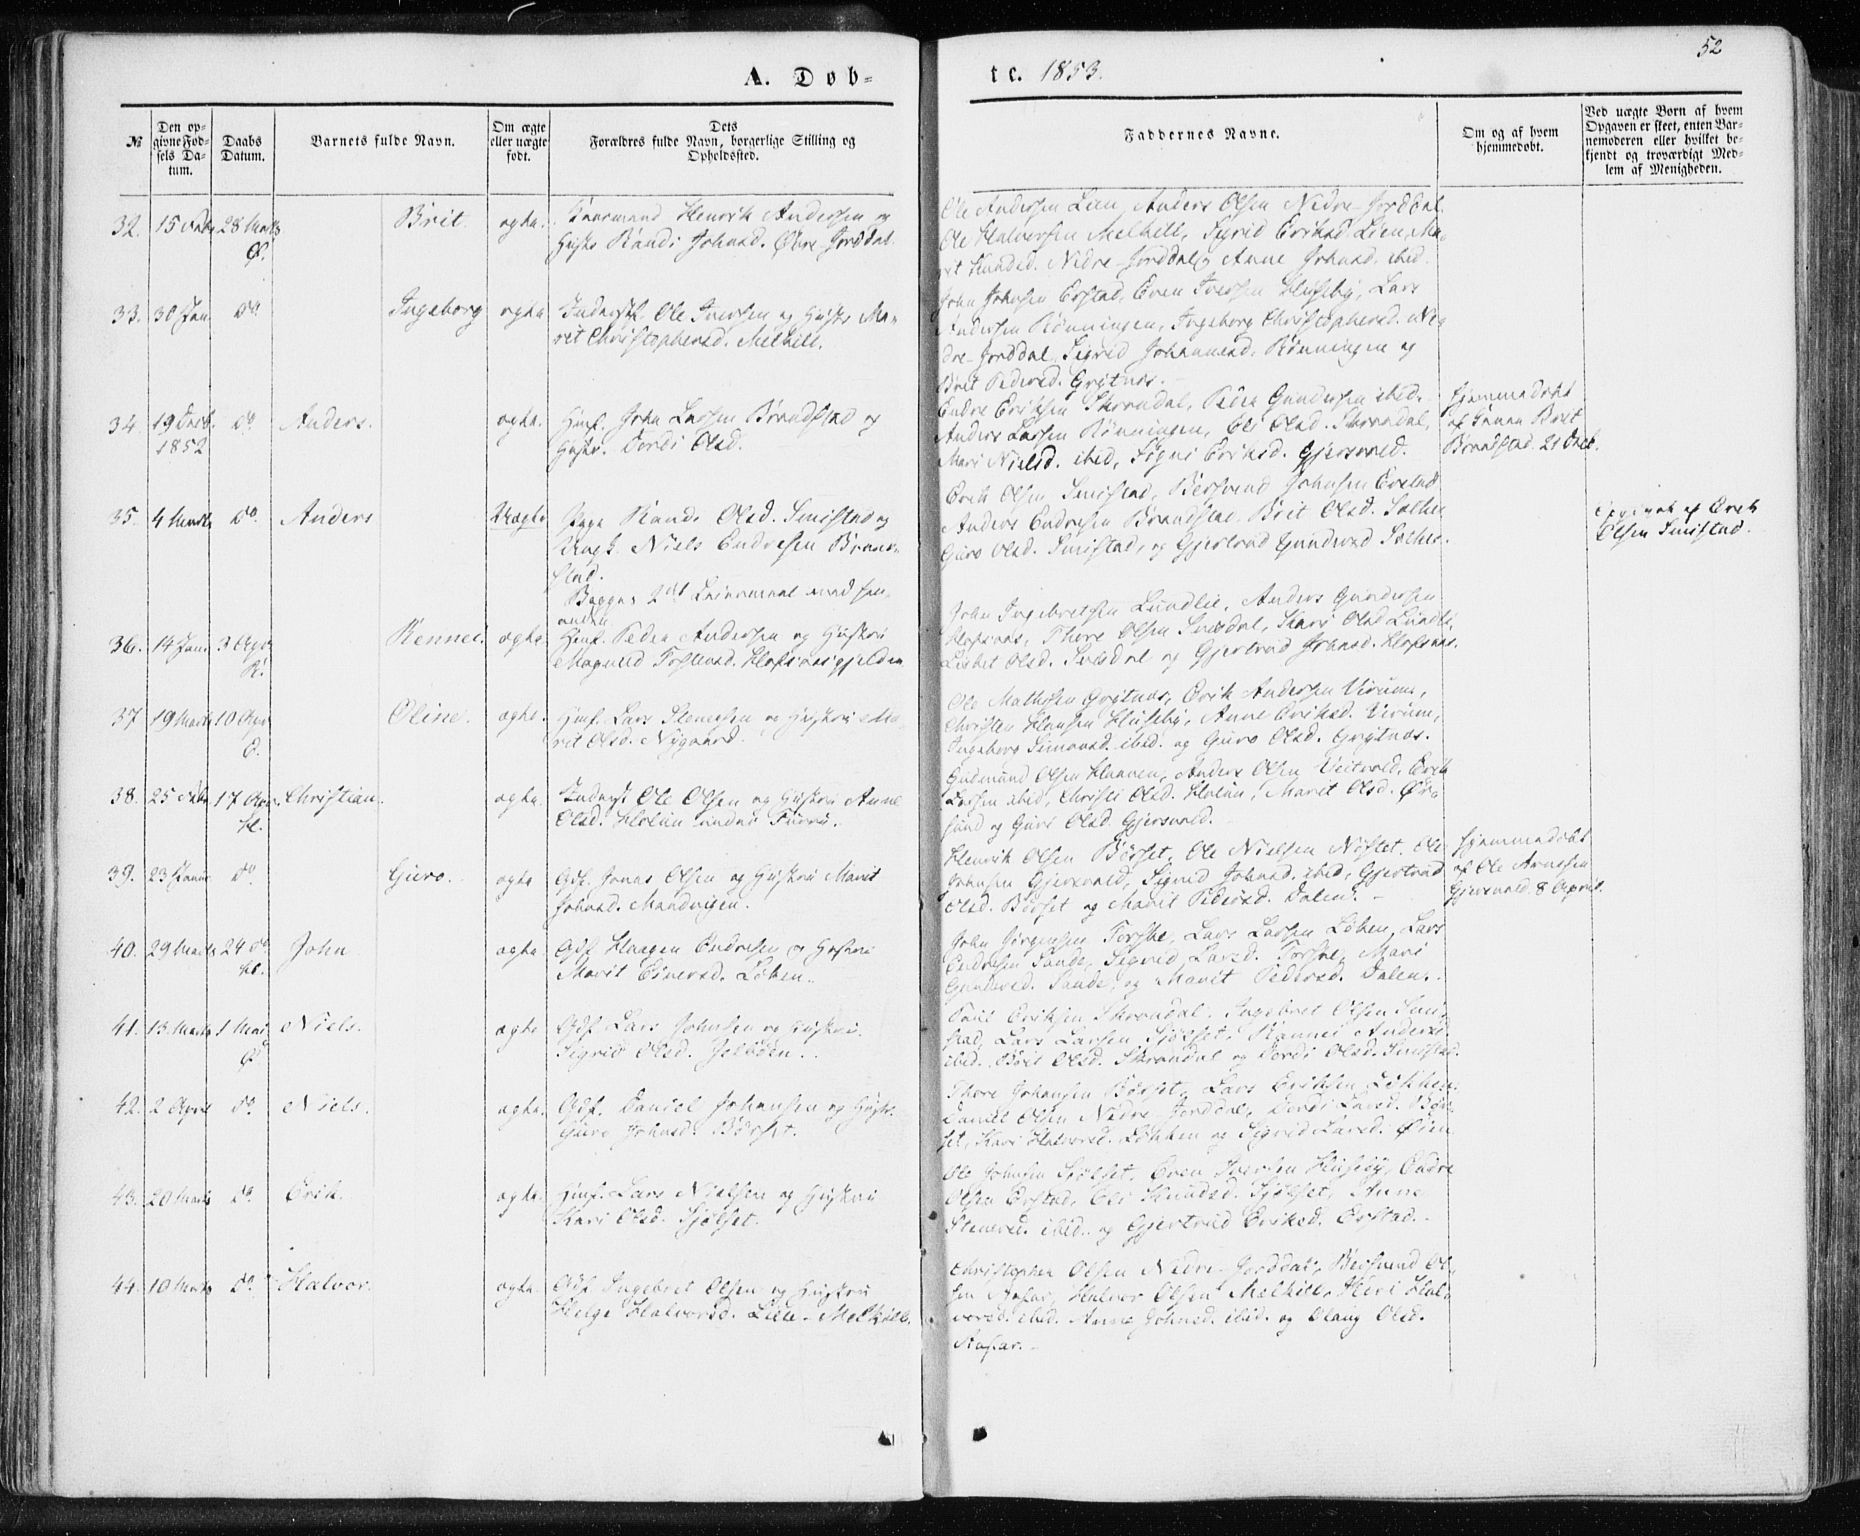 52
A. Døb-
te. 1853.
No
Den op-
givne Fød-
sels Da-
tum.
Daabs
Datum.
Barnets fulde Navn.
Om ægte
eller uægte
født.
Dets
Forældres fulde Navn, borgerlige Stilling og
Opholdssted.
Faddernes Navne.
Om og af hvem
hjemmedøbt.
Ved uægte Børn af hvem
Opgaven er skeet, enten Bar-
nemoderen eller hvilket be-
kjendt og troværdigt Med-
lem af Menigheden.
32. 15 Febr 28 Marts Brit. ægte. Henrik Andersen og
Hustr Randi Johnsd. Øvre Jorddal.
Ole Andersen Lien, Anders Olsen Nedre-Jorddal,
Ole Halvorsen Melhell, Sigrid Eriksd. Lien, Ma-
rit Knudsd. Nedre-Jorddal og Anne Johnsd. ibid.
33. 30 Jan. do Ingeborg ægte Inderst Ole Iversen og Hustr Ma-
rit Christophersd. Melhell.
John Johnsen Erstad, Even Iversen Huseby, Lars
Andersen Rønningen, Ingeborg Christophersd. Ne-
dre-Jorddal, Sigrid Johannesd. Rønningen og
Brit Pedersd. Grytnæs.
34. 19 Decb.
1852 do Anders. ægte. Hmf. John Larsen Brandstad og
Hustr. Dordi Olsd.
Endre Eriksen Skorndal, Peder Gundersen ibid.
Anders Larsen Rønningen, Eli Olsd. Skorndal,
Mari Nielsd. ibid, Signi Eriksd. Gjersvold.
Hjemmedøbt
af Brit
Brandstad 21 Decb.
35. 4 Marts do. Anders Uægte Pige Randi Olsd. Smistad og
Ungk. Niels Endresen Brand-
stad.
Begges 2det Leiermaal med hin-
anden
Erik Olsen Smistad, Bersvend Johnsen Erstad
Anders Endresen Brandstad. Brit Olsd. Sæther
Guro Olsd. Smistad, og Gjertrud Gundersd Sæther.
Opgivet af Erik
Olsen Smistad.
36. 14 Jan. 3 Apr Rennei. ægte Hmf. Peder Andersen og Hustru
Magnild Tostensd.
John Ingebretsen Lundlie, Anders Gundersen
Thore Olsen Kari Olsd Lundli,
Lisbet Olsd. og Gjertrud Johnsd.
37 19 Marts 10 Apr Oline. ægte. Hmf. Lars Stenersen og Hustru Ma-
rit Olsd. Nygaard.
Ole Mathisen Grytnæs, Erik Andersen Virum,
Christen Hansen Huseby, Anne Eriksd. Virum,
Ingeborg Simonsd. ibid. og Guro Olsd. Grytnæs.
38. 25 Febr 17 Apr. Christian. ægte. Inderst Ole Olsen og Hustru Anne
Olsd. Holum under
Gudmund Olsen Haanen, Anders Olsen Erik
Larsen ibid, Christi Olsd. Holum, Marit Olsd.
og Guri Olsd. Gjersvold.
39. 23 do. Guro. ægte Gdf. Jonas Olsen og Hustru Marit
Johnsd. Mandvigen.
Henrik Olsen Børset, Ole Nielsen Ole
Johnsen Gjersvold, Sigrid Johnsd. ibid, Gjertrud
Olsd. Børset og Marit Pedersd. Dalen.
Hjemmedøbt
af Ole Arnesen
Gjersvold 8 April.
40. 29 Marts 24 do John ægte. Gdf Haagen Endresen og Hustru
Marit Einersd. Løken.
John Jørgensen Torske, Lars Larsen Løken, Lars
Endresen Sande, Sigrid Larsd. Torske, Mari
Gundersd. Sande, og Marit Pedersd. Dalen.
41. 13 Marts 1 Mai Niels. ægte Gdf Lars Johnsen og Hustru.
Sigrid Olsd.
Eriksen Skorndal. Ingebret Olsen Smi-
stad, Lars Larsen Sjølset, Rannei Anders.
ibid. Brit Olsd. Skorndal og Dordi Olsd. Smistad.
42. 2 April do. Niels. ægte. Gdf. Daniel Johansen og Hustr.
Guro Johnsd. Børset.
Thore Johansen Børset, Lars Eriksen Løkken,
Daniel Olsen Nedre Jorddal, Dordi Larsd. Bør-
set, Kari Halvorsd. Løkken og Sigrid Larsd. Øien
43. 20 Marts do. Erik. ægte. Hmf. Lars Nielsen og Hustru
Kari Olsd. Sjølset.
Ole Johnsen Sjølset, Even Iversen Huseby, Endre
Olsen Erstad, Eli Knudsd. Sjølset, Anne
Stenersd. ibid. og Gjertrud Eriksd. Erstad.
44. 10 Marts do Halvor. ægte. Gdf. Ingebret Olsen og Hustru
Helge Halvorsd. Lille-Melhell.
Christopher Olsen Nedre-Jorddal, Bersvend Ol-
sen Halvor Olsen Melhell, Hal-
vorsd. ibid. Anne Johnsd. ibid. og Olaug Olsd.